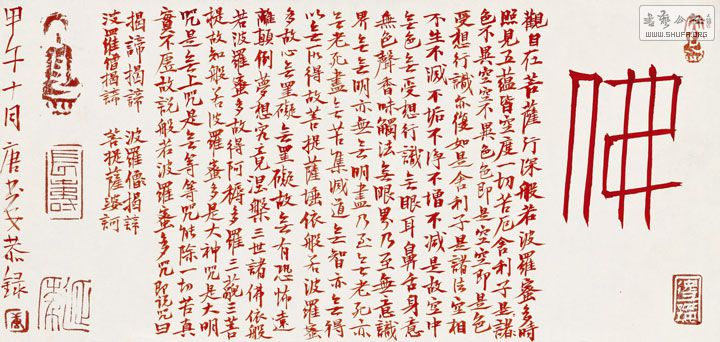 佛
觀自在菩薩行深般若波羅蜜多時
照見五蘊皆空度一切苦厄舍利子是諸
色不異空空不異色色即是空空即是色
受想行識亦復如是舍利子是諸法空相
不生不滅不垢不淨不增不減是故空中
無色無受想行識無眼耳鼻舌身意
無色聲香味觸法無眼界乃至無意識
界無無明亦無無明盡乃至無老死亦
無老死盡無苦集滅道無智亦無得
以無所得故菩提薩埵依般若波羅蜜
多故心無罣礙無罣礙故無有恐怖遠
離顛倒夢想究竟涅槃三世諸佛依般
若波羅蜜多故得阿耨多羅三藐三菩
提故知般若波羅蜜多是大神咒是大明
咒是無上咒是無等等咒能除一切苦真
實不虛故說般若波羅蜜多咒即說咒曰
揭諦 揭諦 波羅揭諦
波羅僧揭諦 菩提薩婆訶
甲午十月唐 恭錄
長壽
WWW.SHUFA.ORG